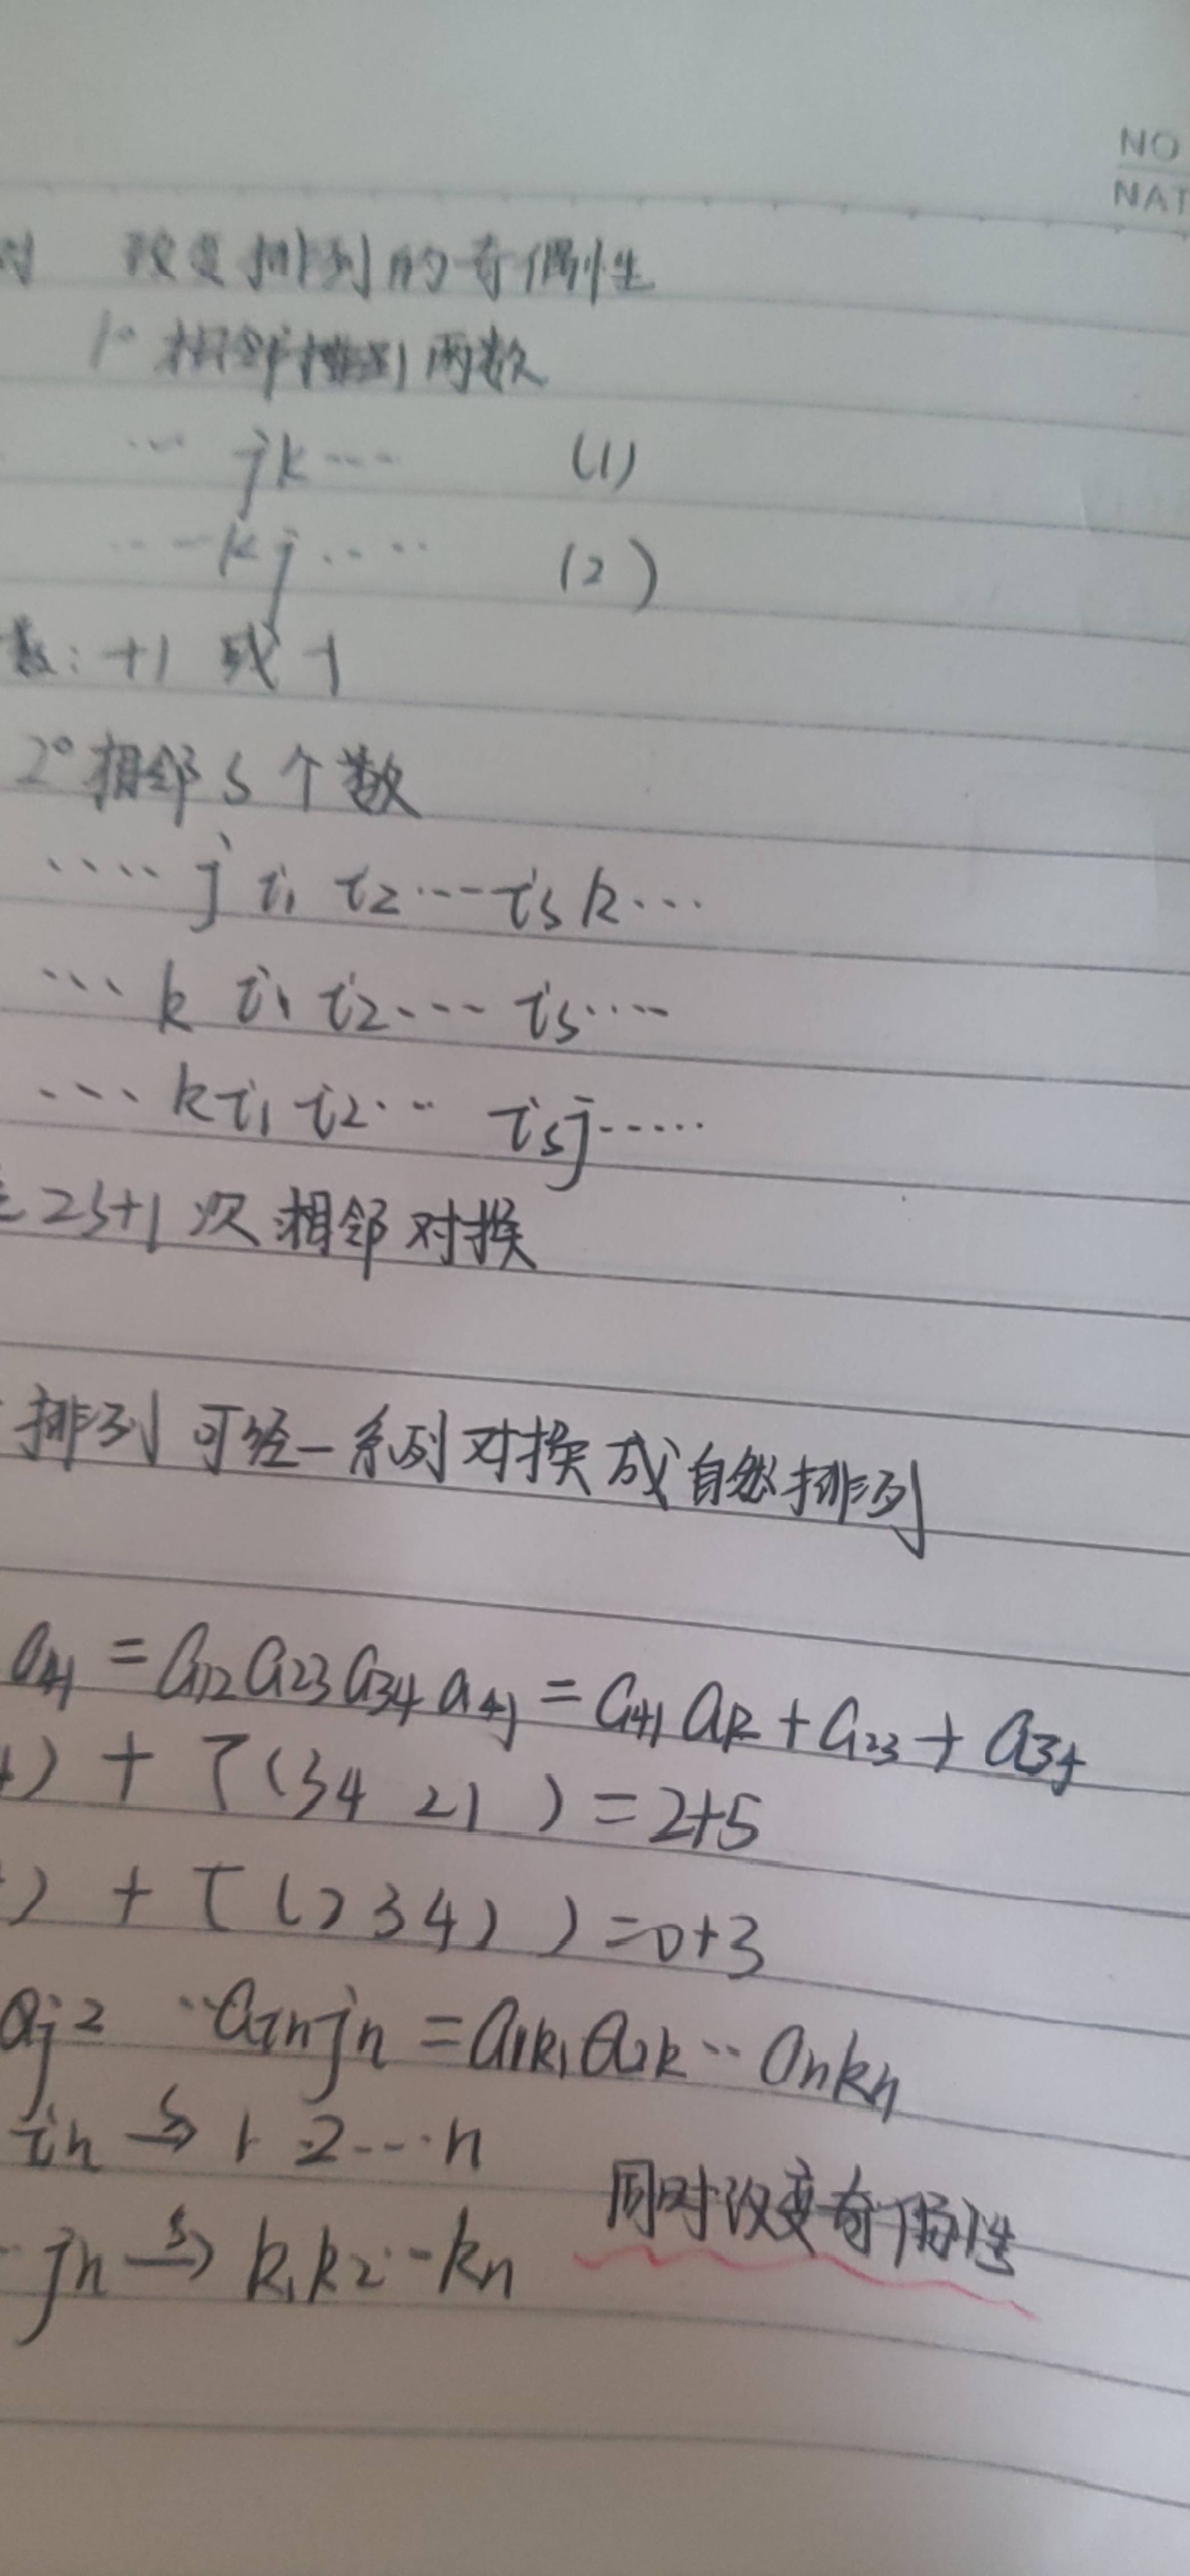 NO
NAT
对 改变排列的奇偶性
1° 相邻排列两数
… jk … (1)
… kj … (2)
数: +1 或 -1
2° 相邻 s 个数
…. j i₁ i₂ … is k …
… k i₁ i₂ … is ….
… k i₁ i₂ … is j …..
2s+1 次相邻对换
排列 可经一系列对换成自然排列
a₄₁ = a₁₂ a₂₃ a₃₄ a₄₁ = a₄₁ a₁₂ + a₂₃ + a₃₄
) + τ(3421) = 2+5
) + τ(2341) = 0+3
aj2 ·· ainjn = a1k₁ a2k ·· ankn
in →s 1 2 … n
同时改变奇偶性
jn →s k₁k₂ … kn